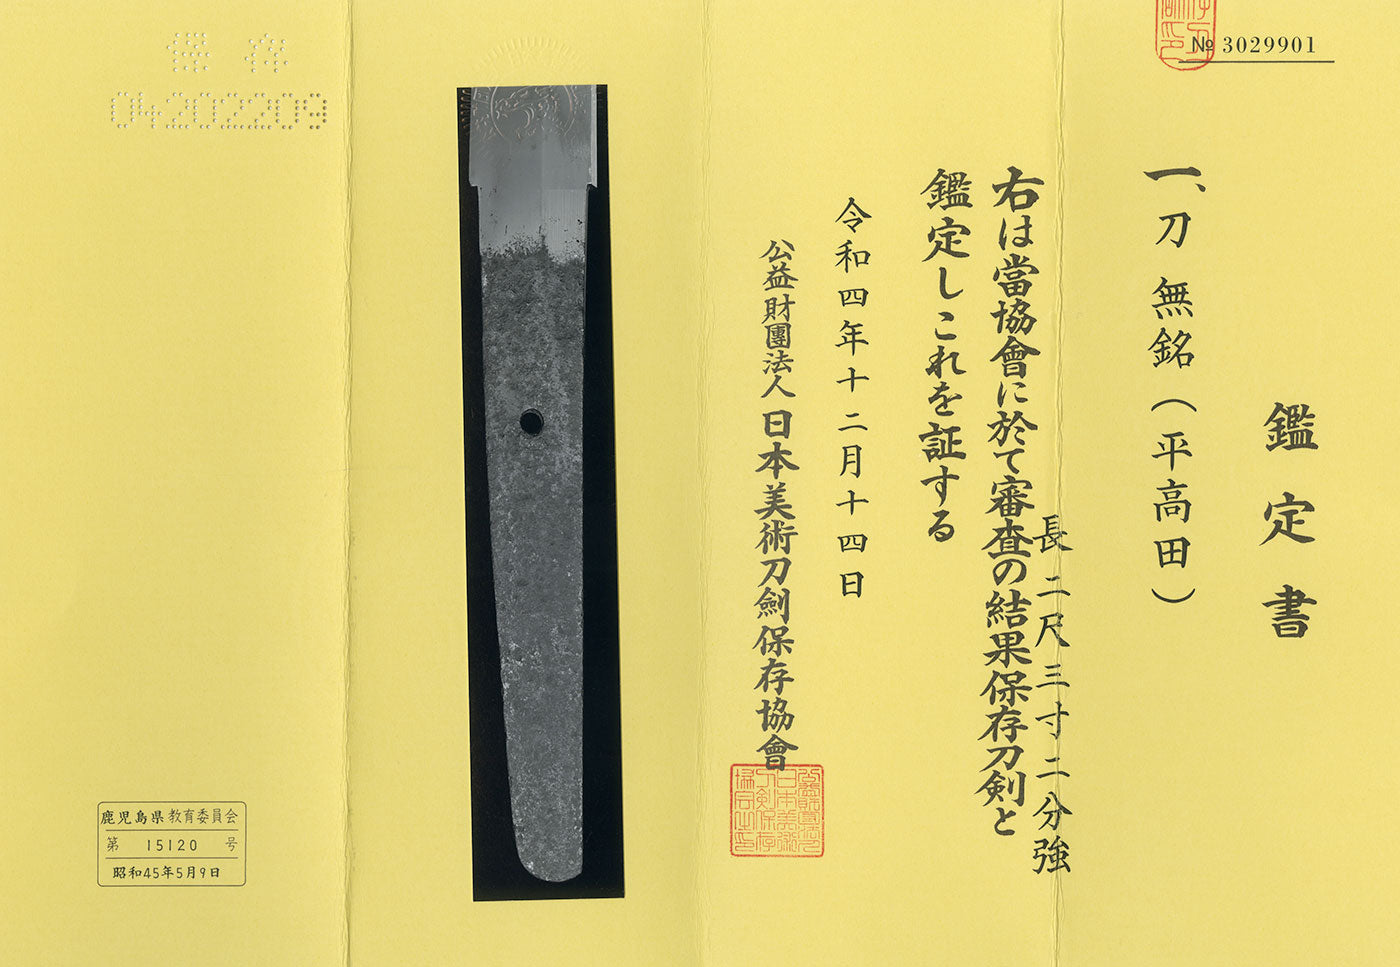 № 3029901
鑑定書
一、刀 無銘（平高田）
長 二尺三寸二分強
右は當協會に於て審査の結果保存刀剣と
鑑定しこれを証する
令和四年十二月十四日
公益財團法人 日本美術刀劍保存協會
保存
04202209
鹿児島県教育委員会
第 15120 号
昭和45年5月9日